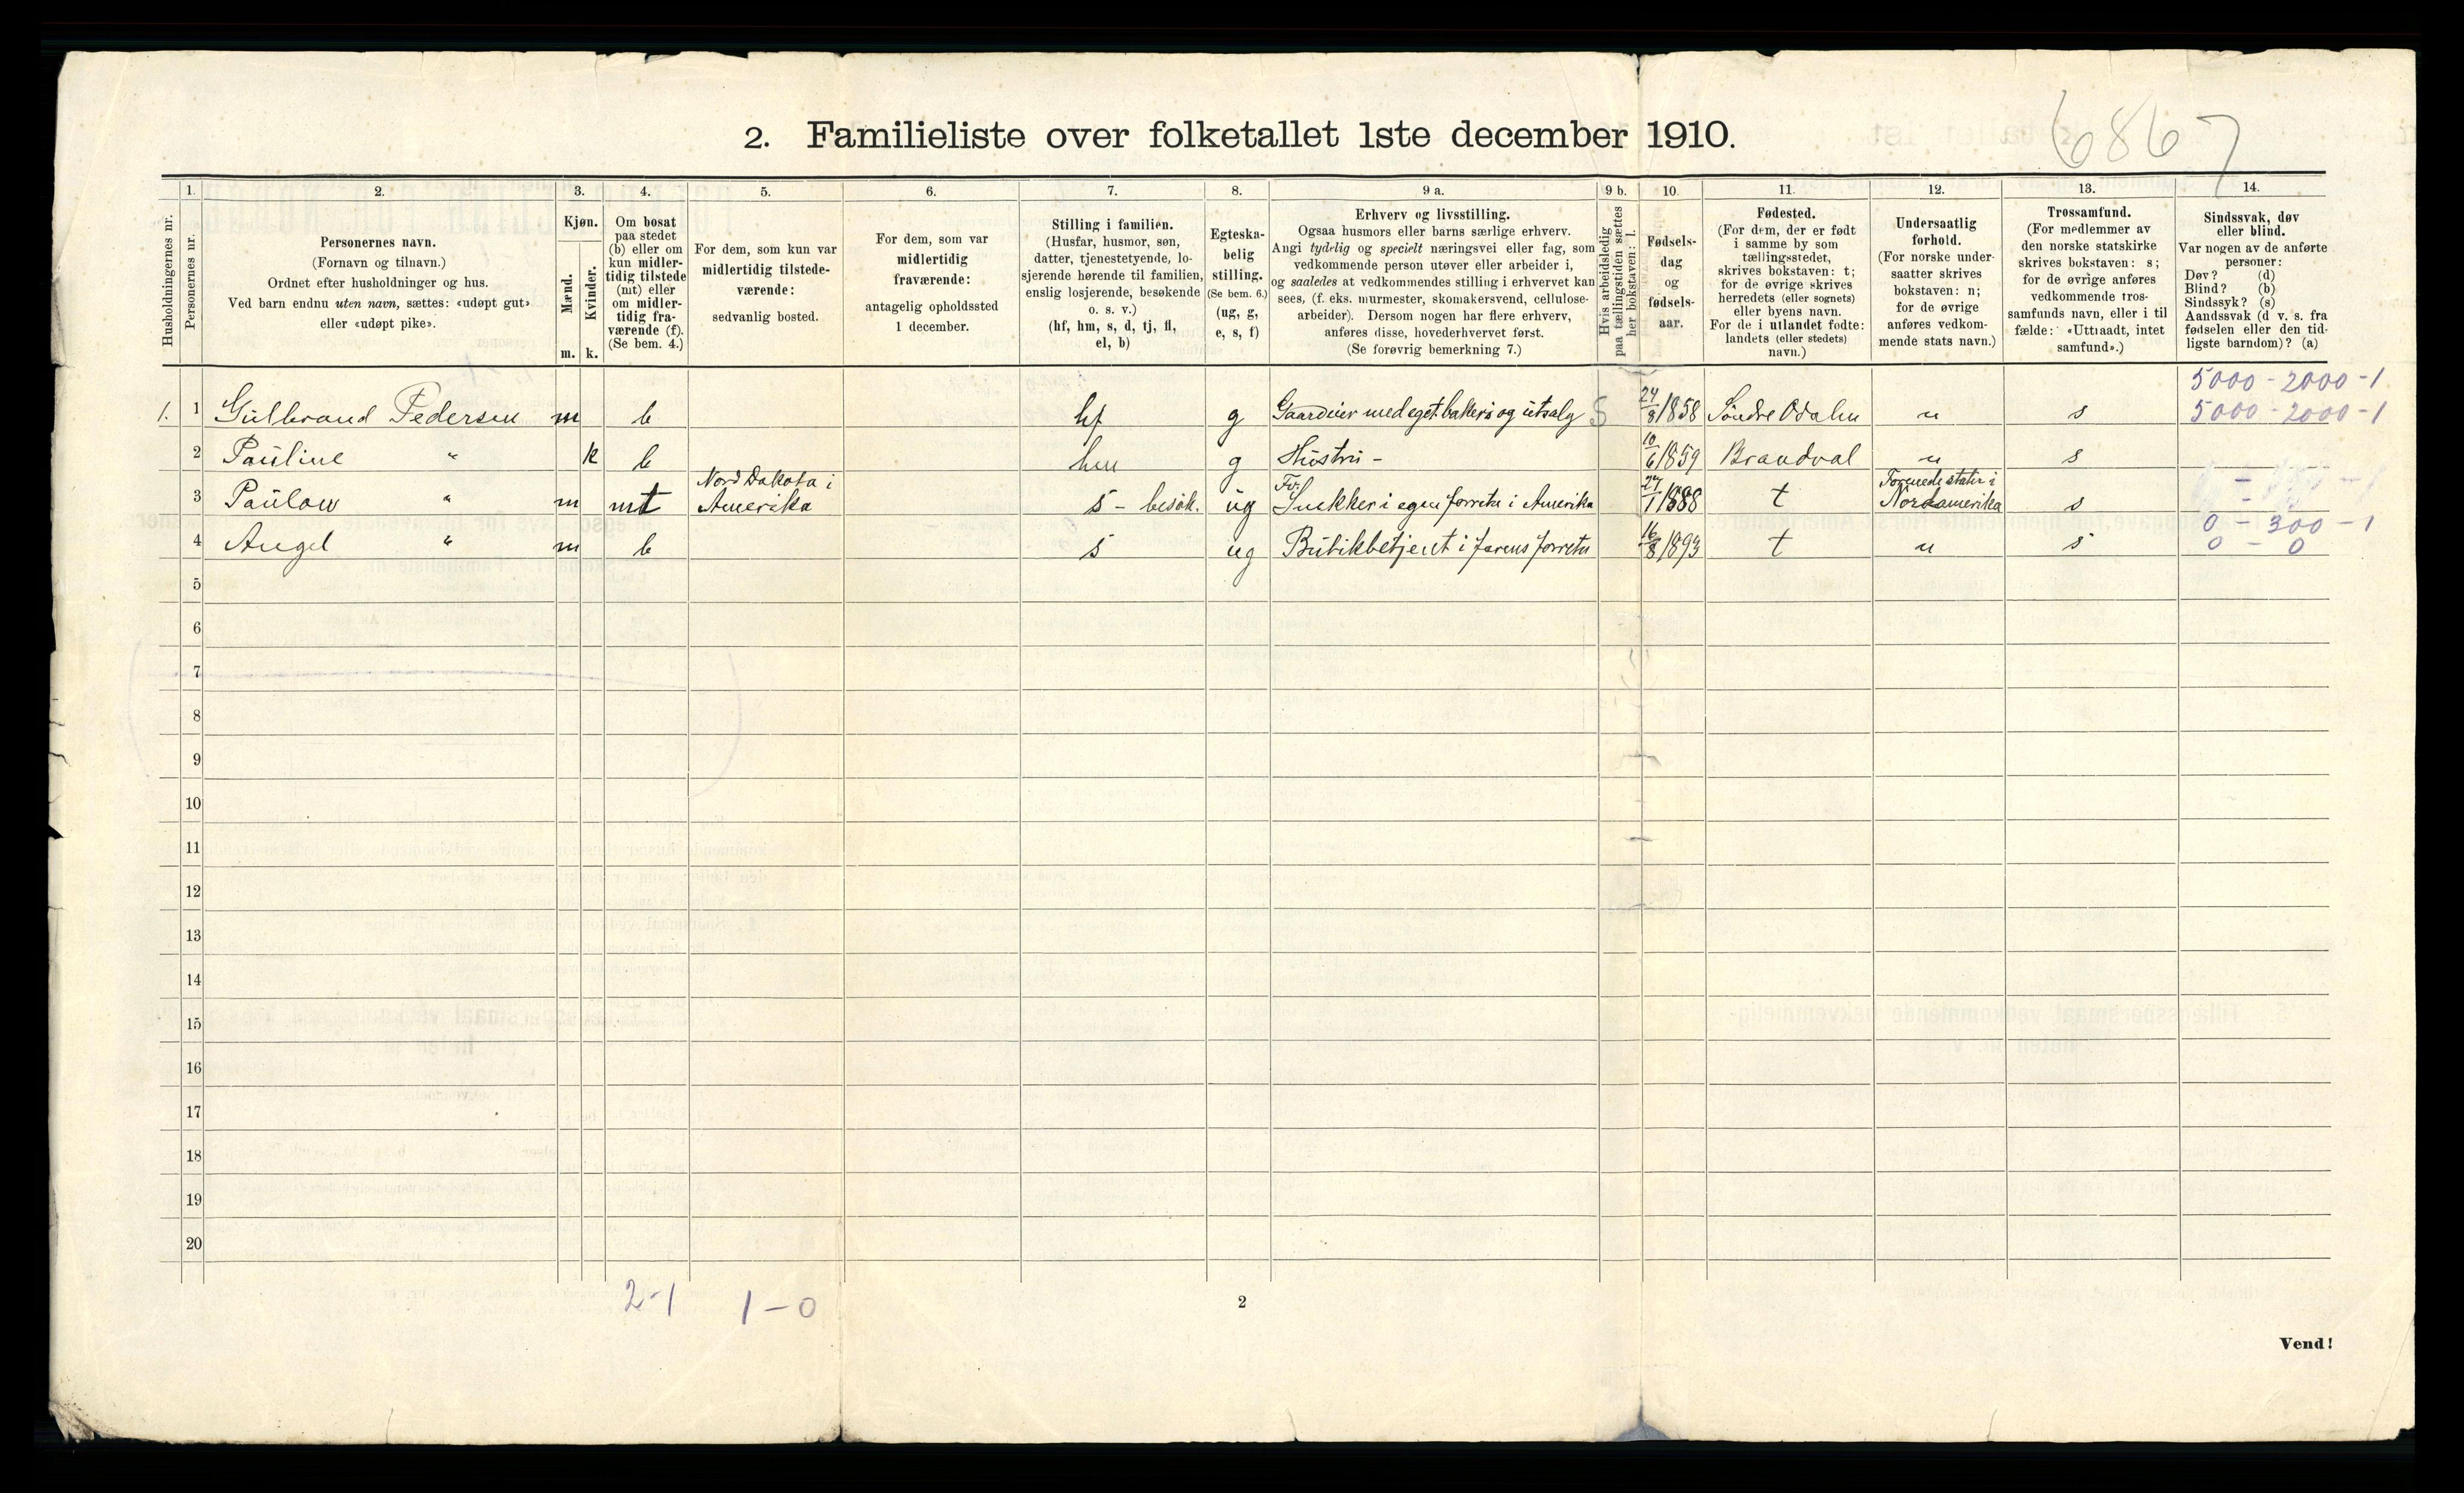 6867
2. Familieliste over folketallet 1ste december 1910.
1. 2. 3. 4. 5. 6. 7. 8. 9 a. 9 b. 10. 11. 12. 13. 14.
Husholdningernes nr.
Personernes nr.
Personernes navn.
(Fornavn og tilnavn.)
Ordnet efter husholdninger og hus.
Ved barn endnu uten navn, sættes: «udøpt gut»
eller «udøpt pike».
Kjøn.
Mænd.
Kvinder.
m. k.
Om bosat
paa stedet
(b) eller om
kun midler-
tidig tilstede
(mt) eller
om midler-
tidig fra-
værende (f).
(Se bem. 4.)
For dem, som kun var
midlertidig tilstede-
værende:
sedvanlig bosted.
For dem, som var
midlertidig
fraværende:
antagelig opholdssted
1 december.
Stilling i familien.
(Husfar, husmor, søn,
datter, tjenestetyende, lo-
sjerende hørende til familien,
enslig losjerende, besøkende
o. s. v.)
(hf, hm, s, d, tj, fl,
el, b)
Egteska-
belig
stilling.
(Se bem. 6.)
(ug, g,
e, s, f)
Erhverv og livsstilling.
Ogsaa husmors eller barns særlige erhverv.
Angi tydelig og specielt næringsvei eller fag, som
vedkommende person utøver eller arbeider i,
og saaledes at vedkommendes stilling i erhvervet kan
sees, (f. eks. murmester, skomakersvend, cellulose-
arbeider). Dersom nogen har flere erhverv,
anføres disse, hovederhvervet først.
(Se forøvrig bemerkning 7.)
Hvis arbeidsledig
paa tællingstiden sættes
her bokstaven: l.
Fødsels-
dag
og
fødsels-
aar.
Fødested.
(For dem, der er født
i samme by som
tællingsstedet,
skrives bokstaven: t;
for de øvrige skrives
herredets (eller sognets)
eller byens navn.
For de i utlandet fødte:
landets (eller stedets)
navn.)
Undersaatlig
forhold.
(For norske under-
saatter skrives
bokstaven: n;
for de øvrige
anføres vedkom-
mende stats navn.)
Trossamfund.
(For medlemmer av
den norske statskirke
skrives bokstaven: s;
for de øvrige anføres
vedkommende tros-
samfunds navn, eller i til
fælde: «Uttraadt, intet
samfund».)
Sindssvak, døv
eller blind.
Var nogen av de anførte
personer:
Døv? (d)
Blind? (b)
Sindssyk? (s)
Aandssvak (d v. s. fra
fødselen eller den tid-
ligste barndom)? (a)
5000 - 2000 - 1
1. 1 Gulbrand Pedersen m b hf g Gaardeier med eget bakeri og utsalg 24/8 1858 Söndre Odalen n s 5000 - 2000 - 1
2 Pauline " k b hm g Hustru - 10/6 1859 Brandval n s
3 Paulow " m mt Nord Dakota i
Amerika s - besök. ug i egen forretn i Amerika 27/1 1888 t Forenede stater i
Nordamerika s
0 - 300 - 1
4 Angel " m b s ug Butikbetjent i farens forretn 16/8 1893 t n s 0 - 0
5
6
7
8
9
10
11
12
13
14
15
16
17
18
19
20
2-1 1-0
2
Vend!